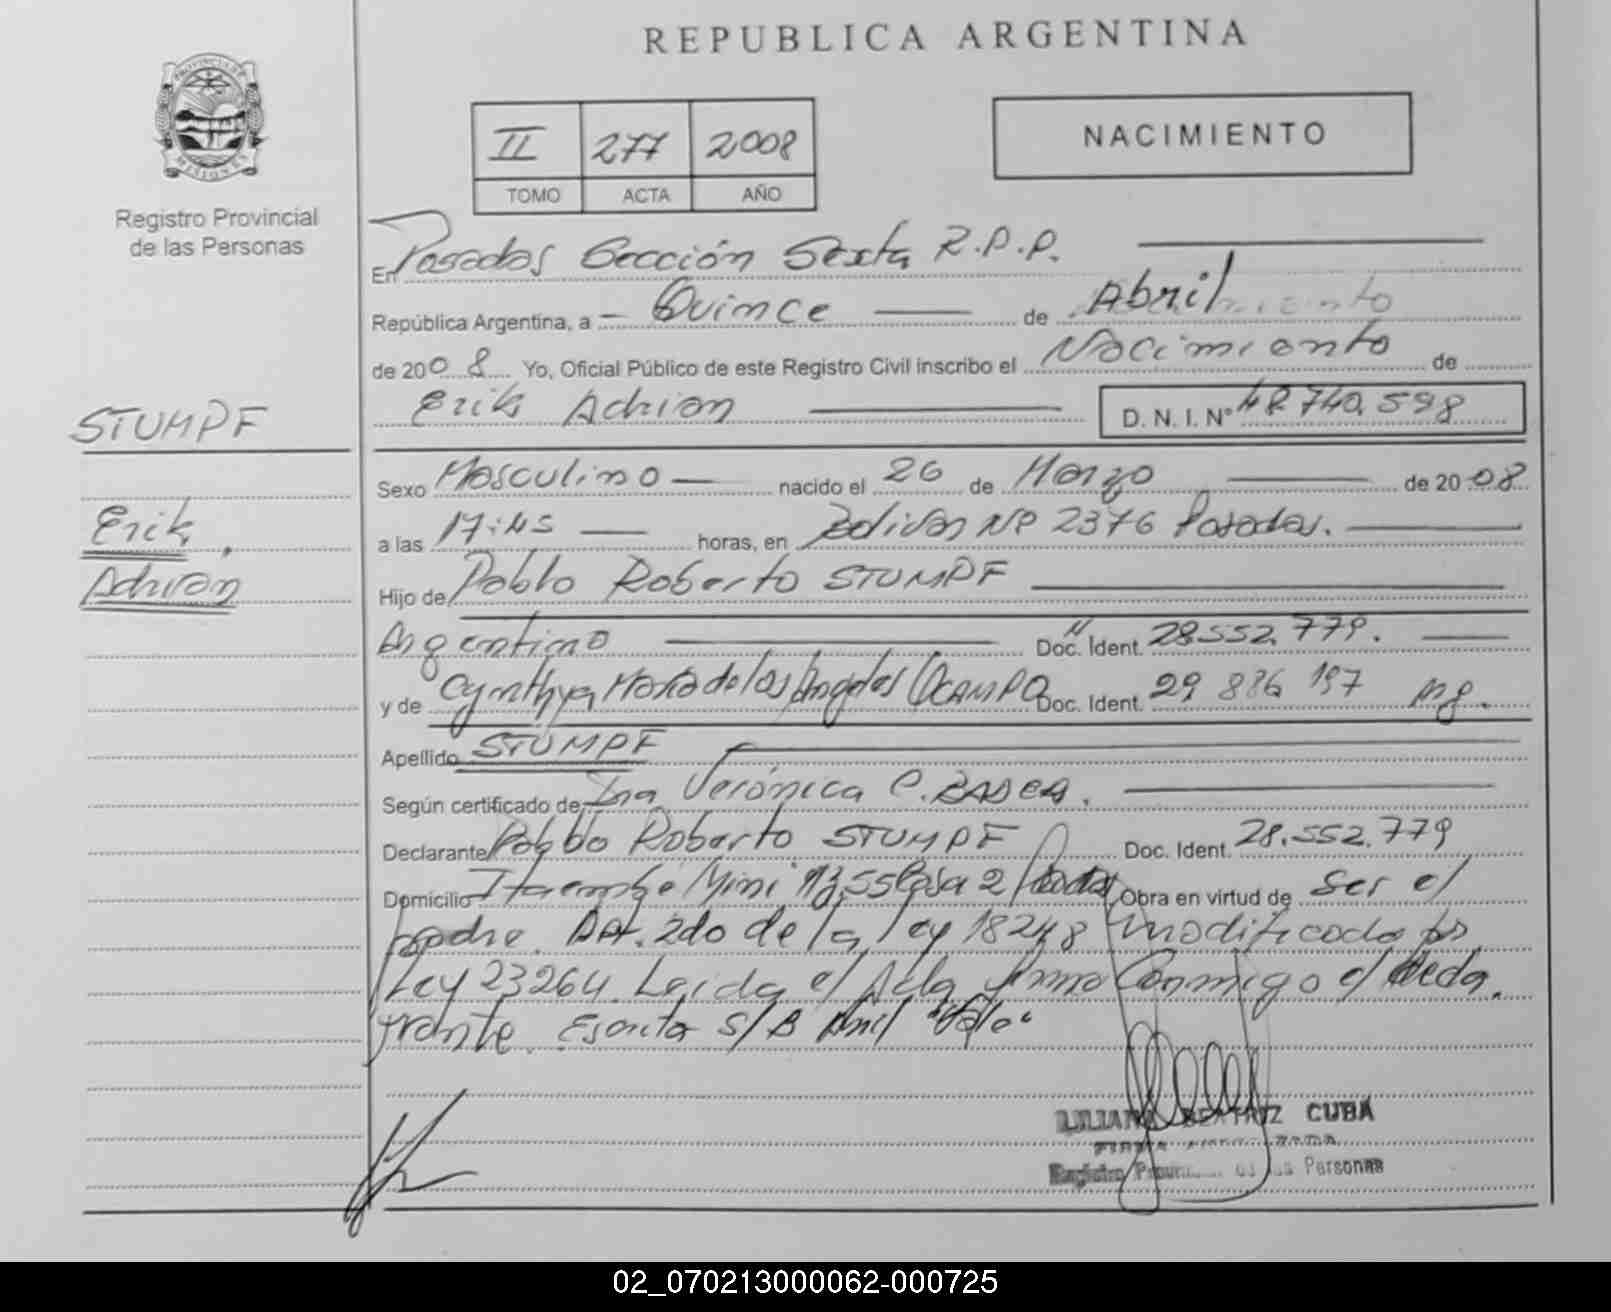 REPUBLICA ARGENTINA
PROVINCIA DE
MISIONES
Registro Provincial
de las Personas
II 277 2008
TOMO ACTA AÑO
NACIMIENTO
En Posadas Sección Sexta R.P.P.
República Argentina, a Quince de Abril
de 2008 Yo, Oficial Público de este Registro Civil inscribo el Nacimiento de
Erik Adrian D. N. I. Nº 48.740.598
STUMPF
Erik,
Adrian
Sexo Masculino nacido el 26 de Marzo de 2008
a las 17:45 horas, en Bolivar Nº 2376 Posadas.
Hijo de Pablo Roberto STUMPF
Argentino Doc. Ident. 28.552.779.
y de Cynthya Maria de los Angeles OCAMPO Doc. Ident. 29 886 197 Arg.
Apellido STUMPF
Según certificado de Dra. Verónica C.
Declarante Pablo Roberto STUMPF Doc. Ident. 28.552.779
Domicilio Itaembé Mini Casa 2 Posadas Obra en virtud de ser el
padre. Art. 2do de la ley 18248 modificada por
Ley 23264. Leida el Acta firma Conmigo el decla
rante. Escrita S/B Abril "Vale"
LILIANA BEATRIZ CUBA
Registro Provincial de las Personas
02_070213000062-000725